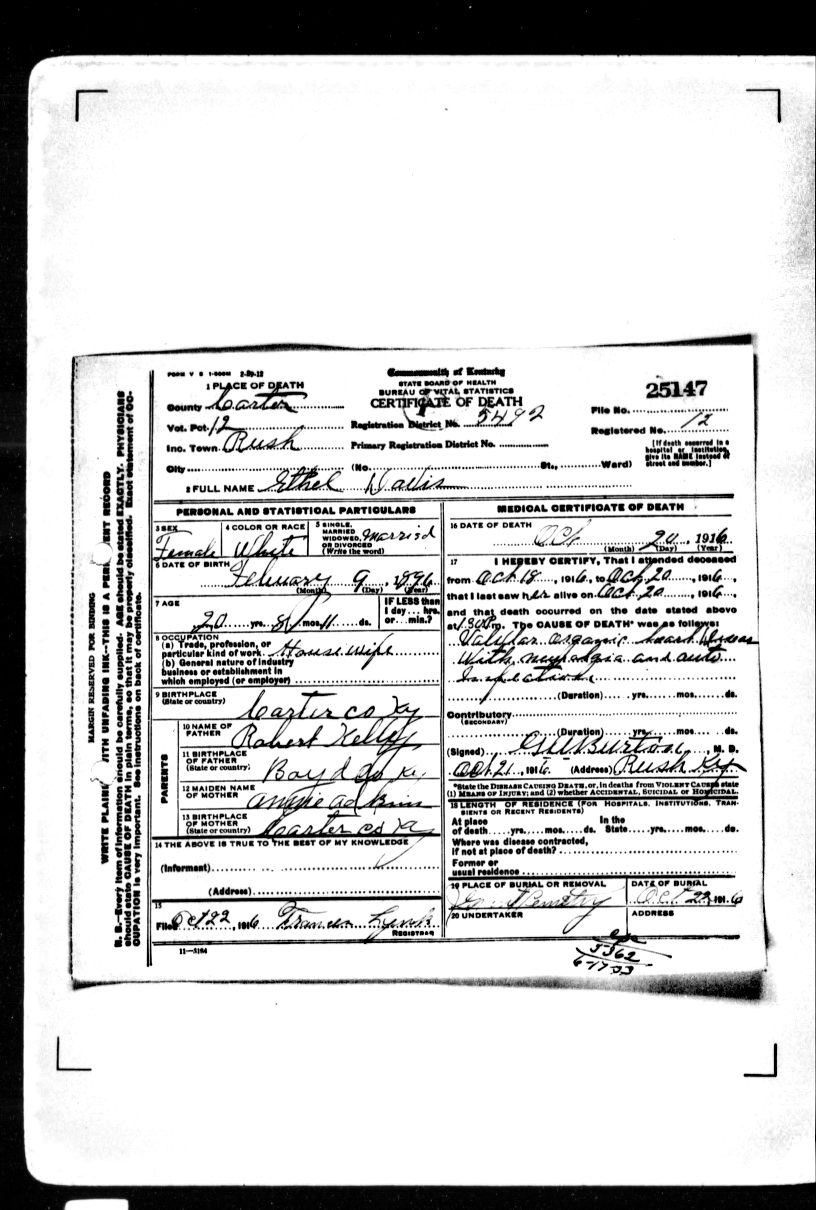 FORM V S 1-500M 2-29-12
Commonwealth of Kentucky
STATE BOARD OF HEALTH
BUREAU OF VITAL STATISTICS
CERTIFICATE OF DEATH
25147
1 PLACE OF DEATH
County Carter
Vot. Pct. 12
Registration District No. 5492
File No.
Registered No. 12
Inc. Town Rush
Primary Registration District No.
[If death occurred in a hospital or institution, give its NAME instead of street and number.]
City (No. St., Ward)
2 FULL NAME Ethel Davis
PERSONAL AND STATISTICAL PARTICULARS
3 SEX Female
4 COLOR OR RACE White
5 SINGLE, MARRIED WIDOWED, OR DIVORCED (Write the word) Married
6 DATE OF BIRTH February 9, 1896
(Month) (Day) (Year)
7 AGE 20 yrs. 8 mos. 11 ds.
IF LESS than 1 day... hrs. or... min.?
8 OCCUPATION
(a) Trade, profession, or particular kind of work House wife
(b) General nature of industry business or establishment in which employed (or employer)
9 BIRTHPLACE (State or country) Carter co Ky
PARENTS
10 NAME OF FATHER Robert Kelley
11 BIRTHPLACE OF FATHER (State or country) Boyd Co Ky
12 MAIDEN NAME OF MOTHER Angie Adkins
13 BIRTHPLACE OF MOTHER (State or country) Carter co Ky
14 THE ABOVE IS TRUE TO THE BEST OF MY KNOWLEDGE
(Informant)
(Address)
15
Filed Oct 22, 1916 Frances Lynch
REGISTRAR
11-3184
MEDICAL CERTIFICATE OF DEATH
16 DATE OF DEATH Oct. 20, 1916
(Month) (Day) (Year)
17 I HEREBY CERTIFY, That I attended deceased
from Oct 18, 1916, to Oct 20, 1916,
that I last saw her alive on Oct. 20, 1916,
and that death occurred on the date stated above
at 1:30 Pm. The CAUSE OF DEATH* was as follows:
Valvular organic heart
With and auto
(Duration) yrs. mos. ds.
Contributory
(SECONDARY)
(Duration) yrs. mos. ds.
(Signed) Burton, M. D.
Oct. 21, 1916 (Address) Rush Ky
*State the DISEASE CAUSING DEATH, or, in deaths from VIOLENT CAUSES state (1) MEANS OF INJURY; and (2) whether ACCIDENTAL, SUICIDAL OR HOMICIDAL.
18 LENGTH OF RESIDENCE (FOR HOSPITALS, INSTITUTIONS, TRANSIENTS OR RECENT RESIDENTS)
At place of death yrs. mos. ds.
In the State yrs. mos. ds.
Where was disease contracted, if not at place of death?
Former or usual residence
19 PLACE OF BURIAL OR REMOVAL
DATE OF BURIAL Oct 22, 1916
20 UNDERTAKER
ADDRESS
5362
6-17-33
MARGIN RESERVED FOR BINDING
WRITE PLAINLY WITH UNFADING INK—THIS IS A PERMANENT RECORD
N. B.—Every item of information should be carefully supplied. AGE should be stated EXACTLY. PHYSICIANS
should state CAUSE OF DEATH in plain terms, so that it may be properly classified. Exact statement of OC-
CUPATION is very important. See instructions on back of certificate.